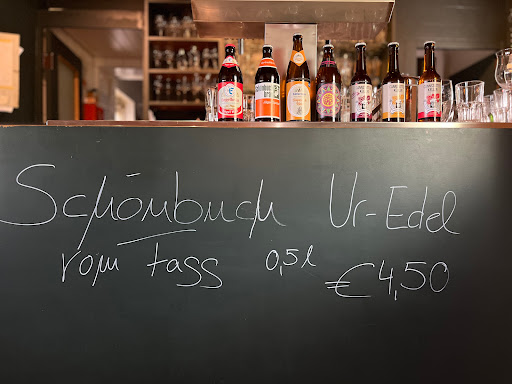 Schönbuch Ur-Edel
vom Fass 0,5l €4,50